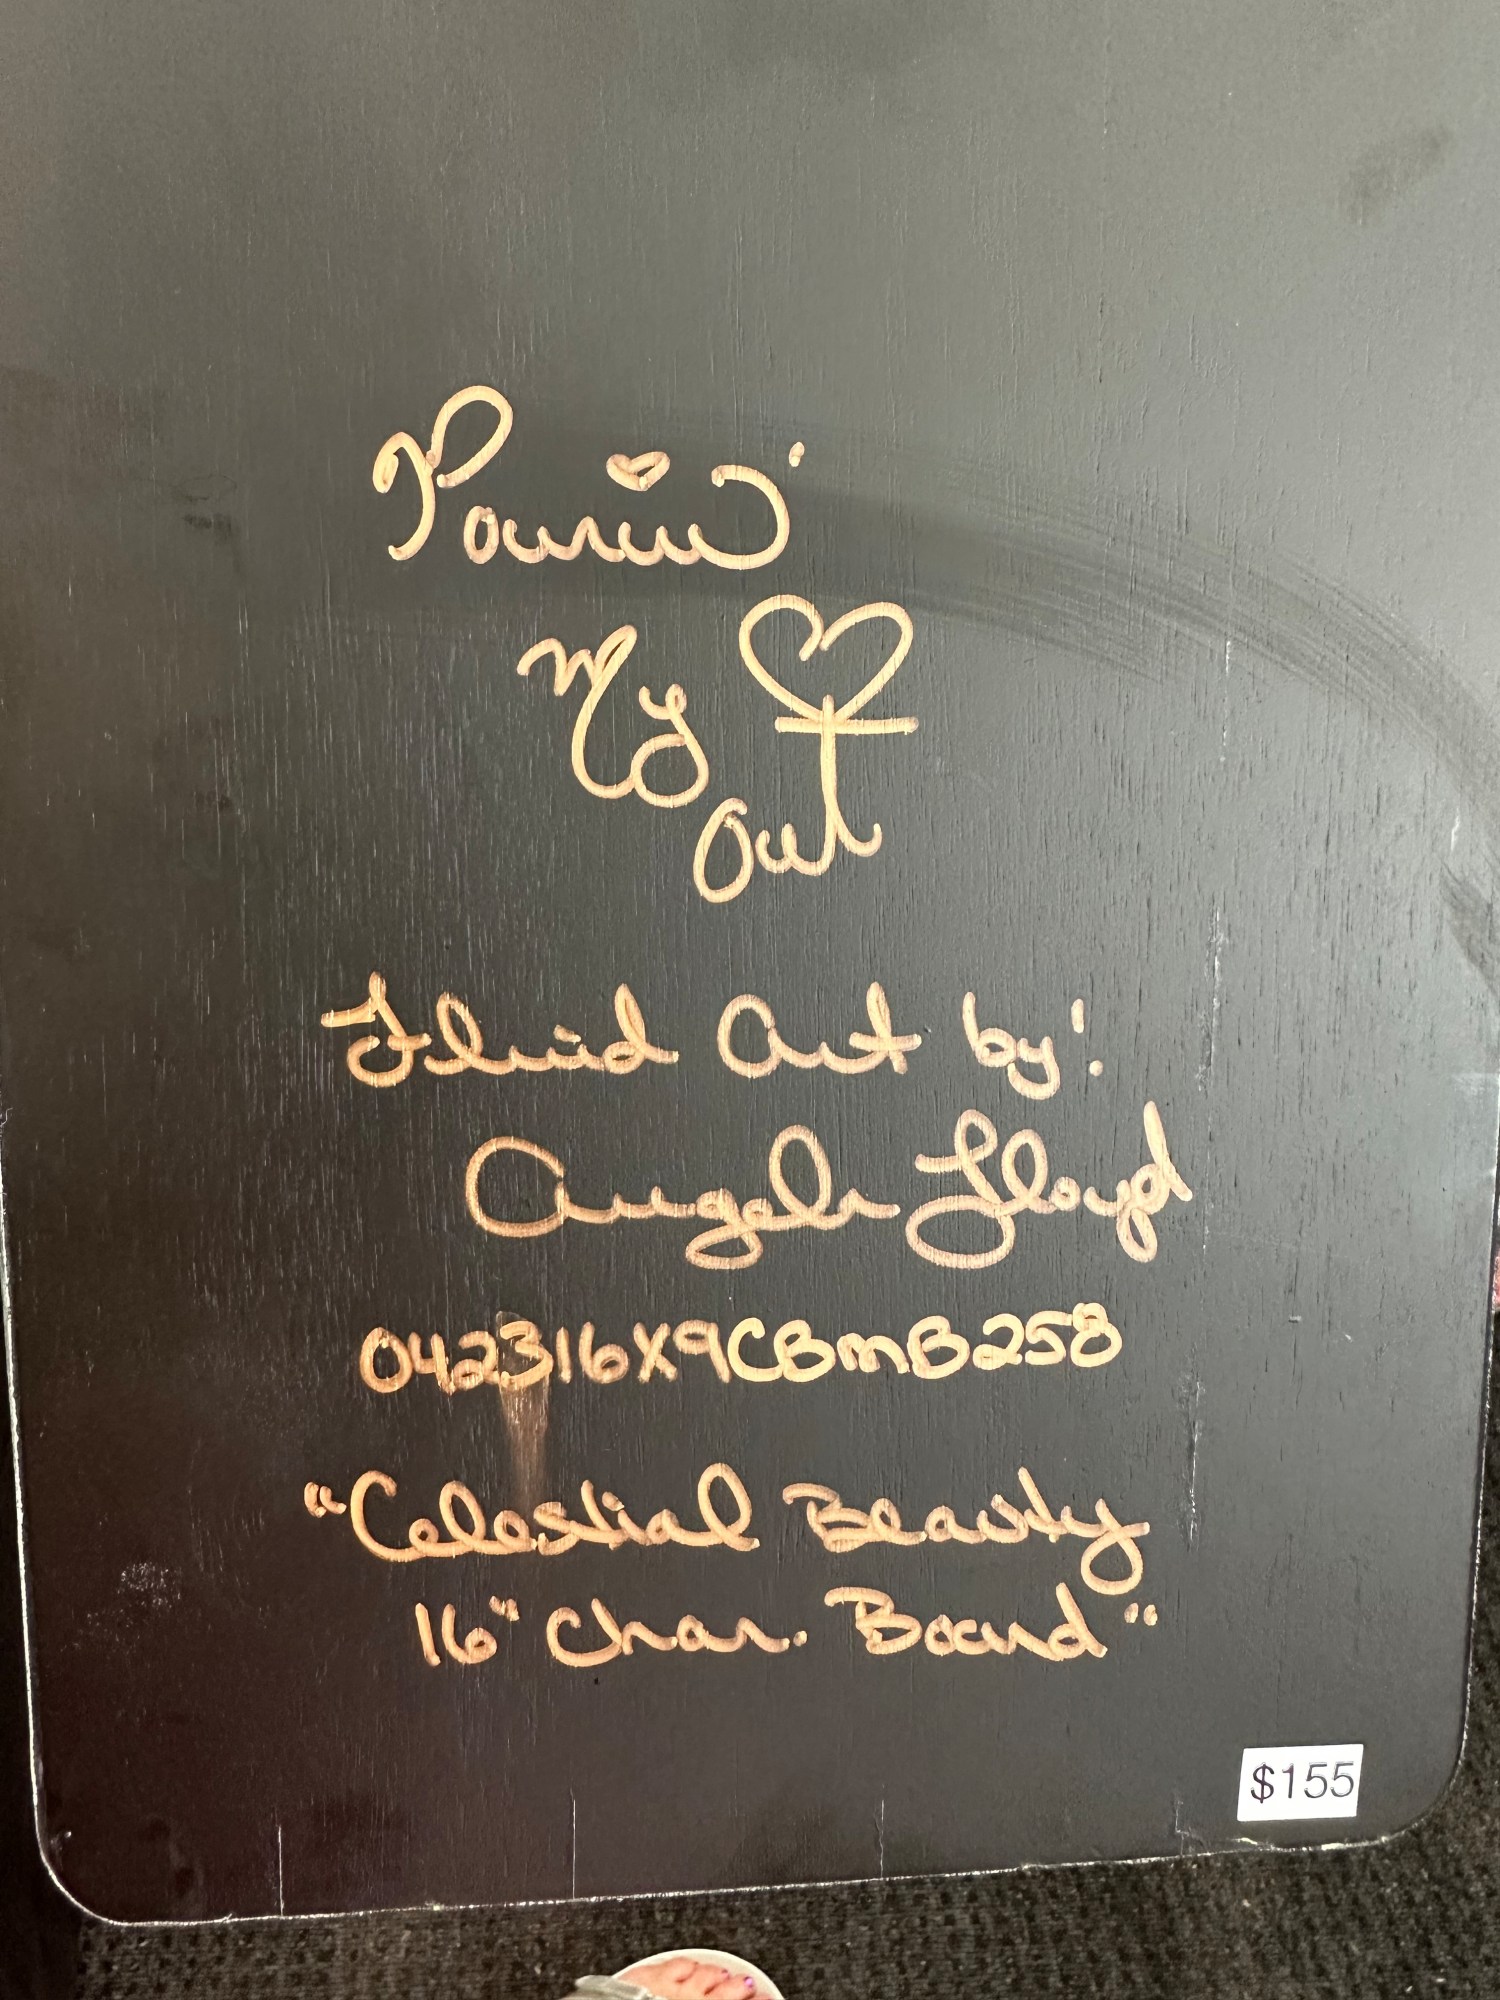 Pourin'
My ♡
out
Fluid Art by:
Angela Lloyd
042316X9CBMB258
"Celestial Beauty
16" Char. Board"
$155